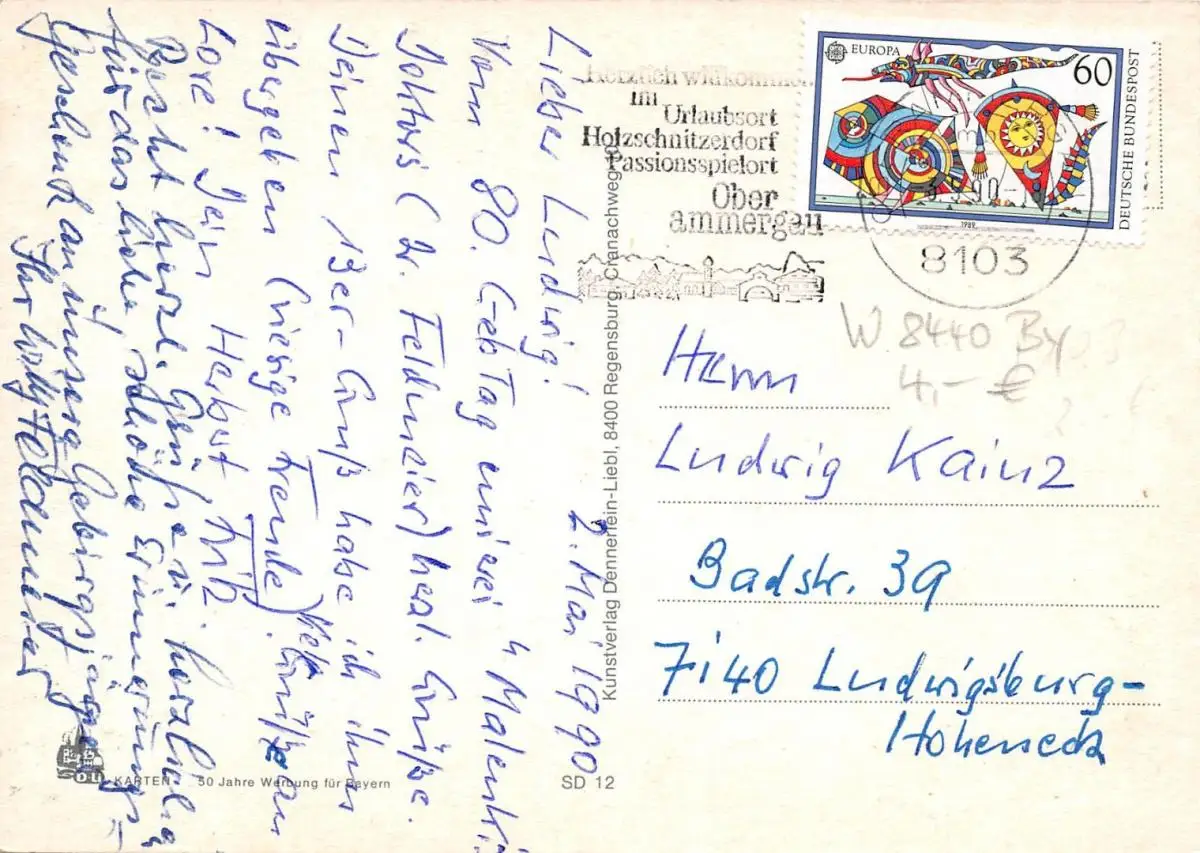 Lieber Ludwig!
2. Mai 1990
Vom 80. GebTag unseres
Doktors (Dr. Feldmeier) herzl. Grüße.
Deinen 13er-Gruß habe ich ihm
übergeben (riesige Freude!) Viele Grüße an
Lore! Dein Herbst Fritz
Recht herzl. Grüße u. herzlichen
für das liebe, schöne Erinnerungs-
Geschenk an unsere Gebirgsjäger
Ihr Willy Feldmeier
Herzlich willkommen
im
Urlaubsort
Holzschnitzerdorf
Passionsspielort
Ober
ammergau
EUROPA
60
DEUTSCHE BUNDESPOST
1989
8103
W 8440 By
4,- €
Herrn
Ludwig Kainz
Badstr. 39
7140 Ludwigsburg-
Hoheneck
Kunstverlag Dennerlein-Liebl, 8400 Regensburg, Cranachweg
KARTEN 50 Jahre Werbung für Bayern
SD 12